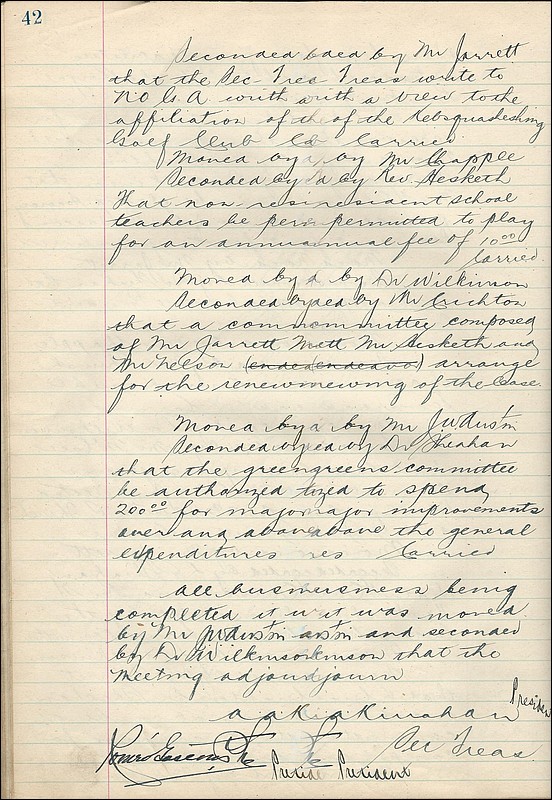 42
Seconded bded by Mr Jarrett
that the Sec-Tres Treas write to
N O G A with with a view to the
affiliation of th of the
Golf Club Cl Carried
Moved by by Mr Chappee
Seconded by d by Rev. Hesketh
That non-resiresident school
teachers be perm permitted to play
for an annuannual fee of 10.00
Carried
Moved by d by Dr Wilkinson
Seconded byded by Mr Crichton
that a commcommittee composed
of Mr Jarrett Mr Hesketh and
Mr Nelson (endeaendeavor) arrange
for the renewnewing of the lease.
Moved by d by Mr Jn Austin
Seconded byed by Dr Sheahan
that the greengreens committee
be authorized ized to spend
200.00 for majormajor improvements
over and aboveabove the general
expenditures res Carried
All businsusiness being
completed it w it was moved
by Mr Jn Austin austin and seconded
by Dr Wilkinsonkinson that the
meeting adjourdjourn
President
Sec Treas.
Preside President